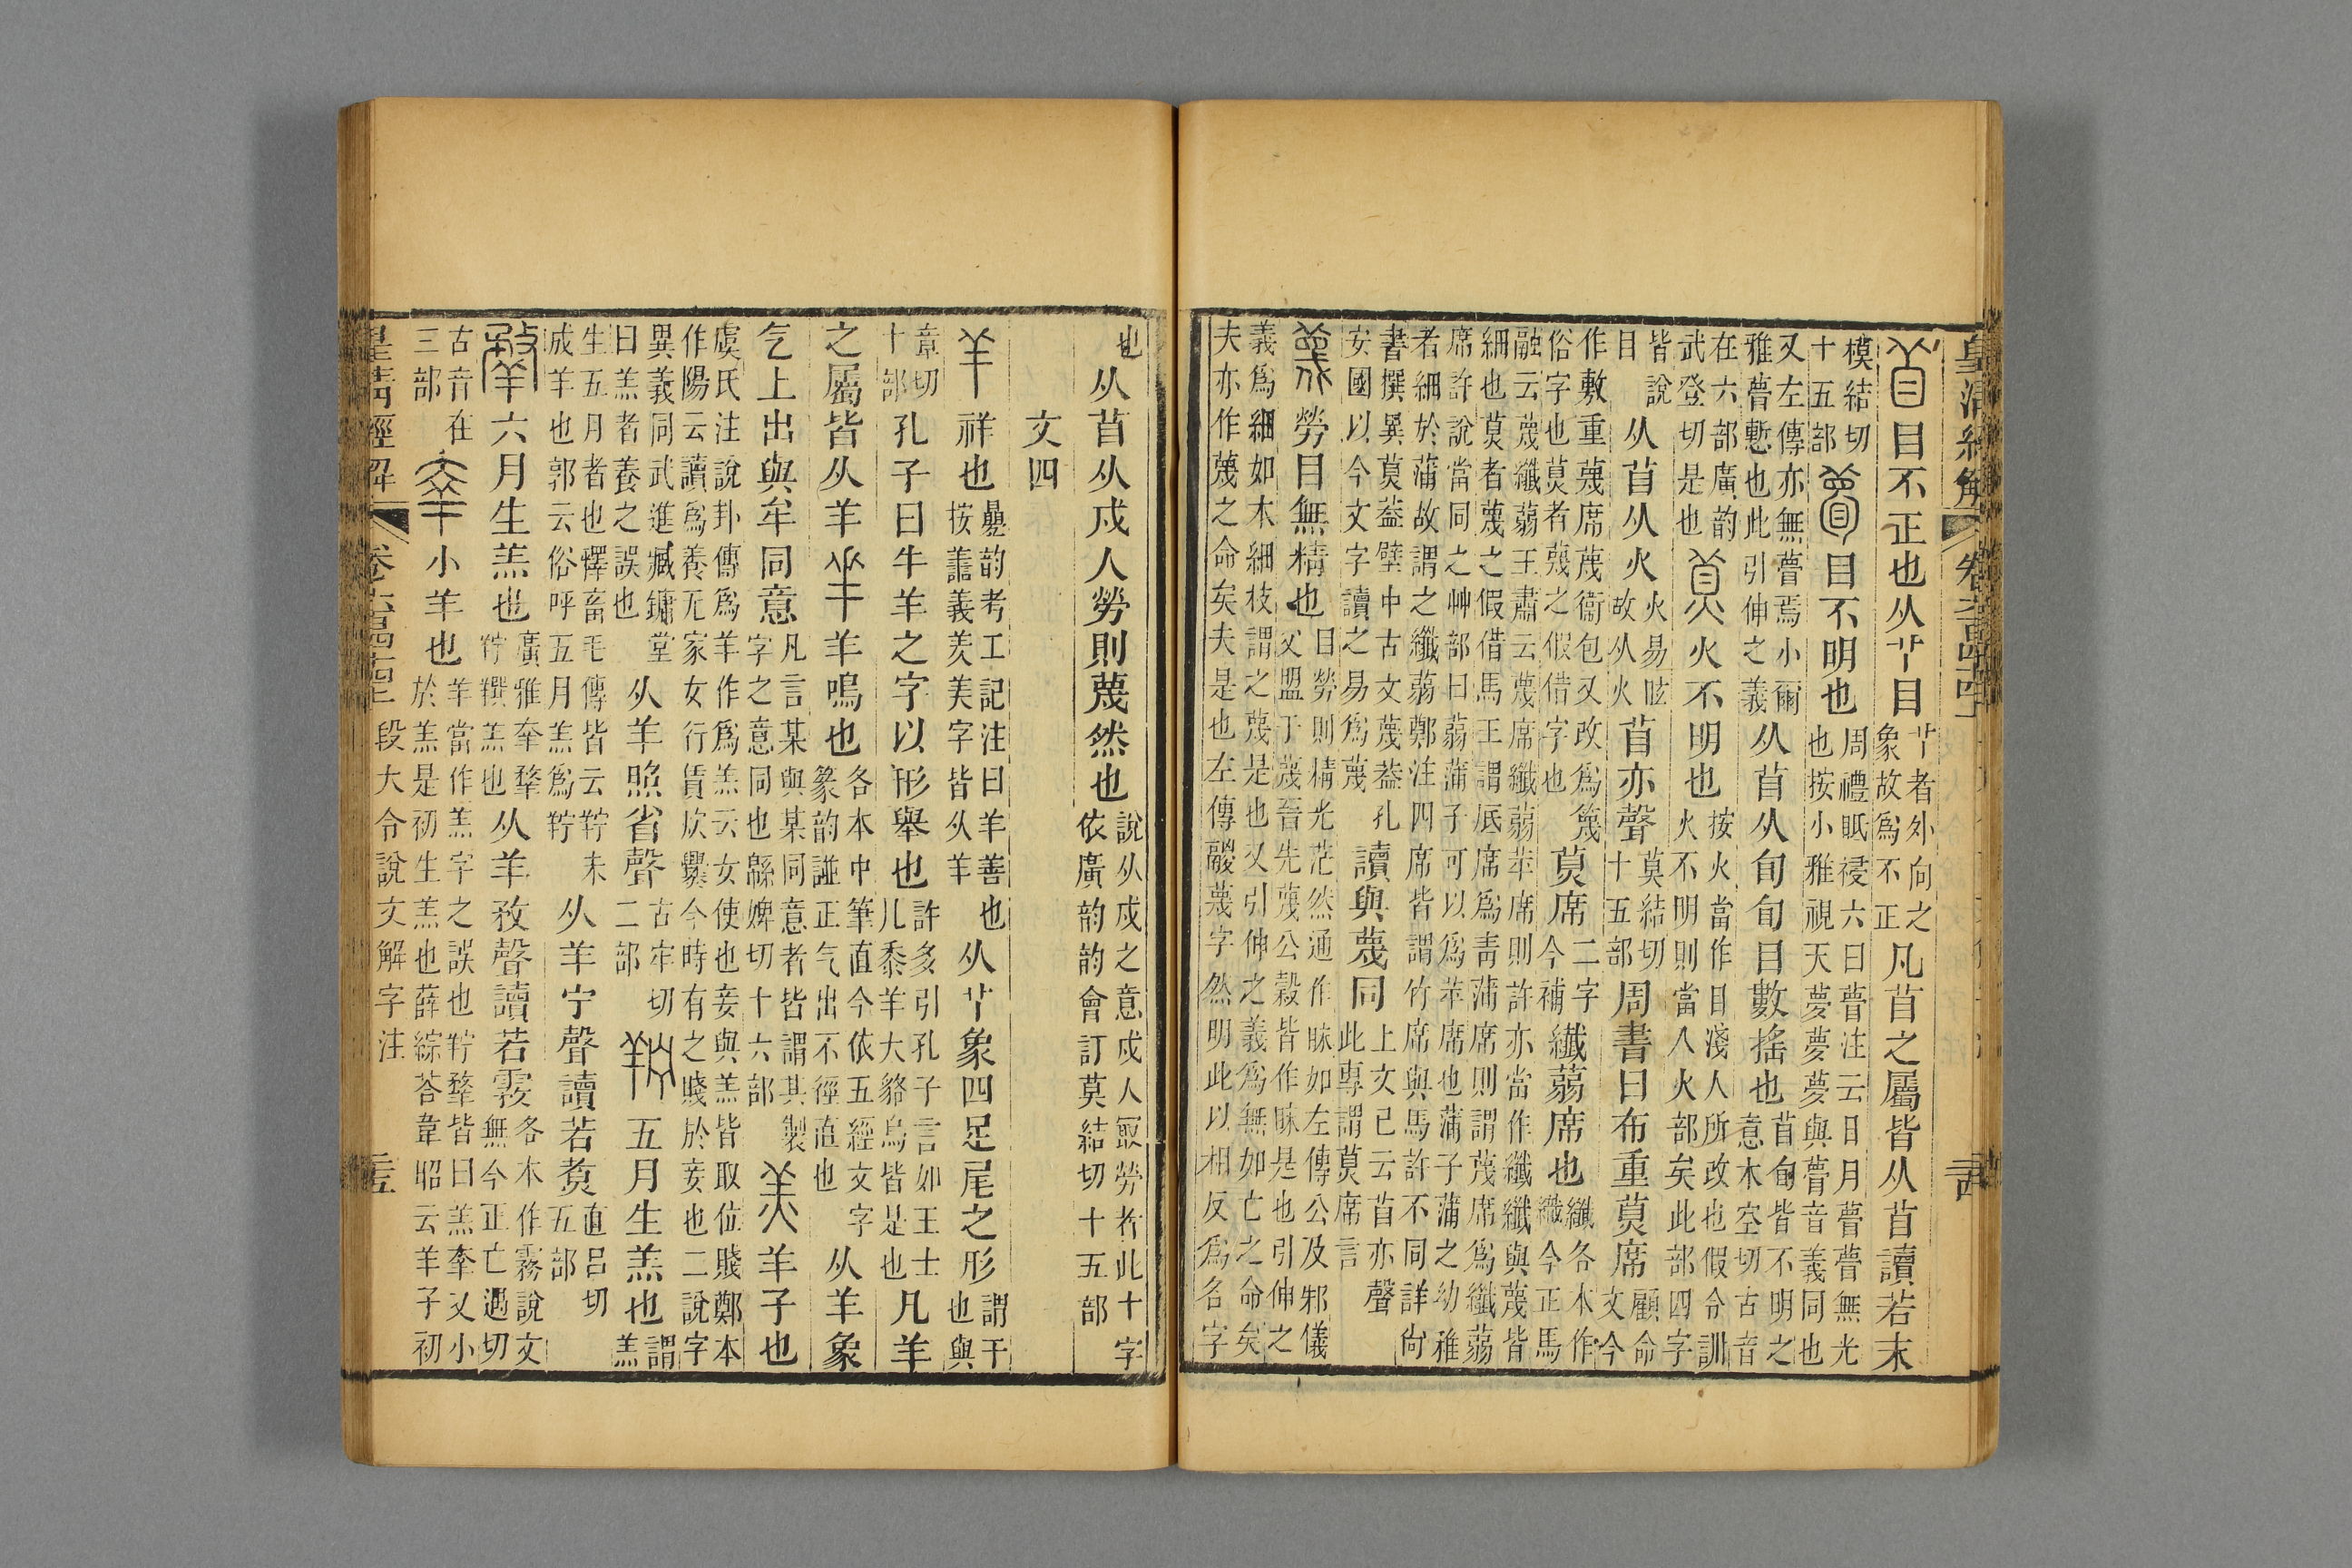 皇清經解 卷六百四十四
𥄕目不正也从𠁥目𠁥者外向之象故爲不正凡𥄕之屬皆从𥄕讀若末
模結切十五部瞢目不明也周禮眡祲六曰瞢注云日月瞢瞢無光也按小雅視天夢夢夢與瞢音義同也
又左傳亦無瞢焉小爾雅瞢慙也此引伸之義从𥄕从旬旬目數搖也𥄕旬皆不明之意木空切古音
在六部廣韵武登切是也莧火不明也按火當作目淺人所改也假令訓火不明則當入火部矣此部四字
皆說目从𥄕从火火易眩故从火𥄕亦聲莫結切十五部周書曰布重莧席顧命文今
作敷重蔑席蔑衞包又改爲篾俗字也莧者蔑之假借字也莧席二字今補纖蒻席也纖各本作織今正馬
融云蔑纖蒻王肅云蔑席纖蒻苹席則許亦當作纖纖與蔑皆細也莧者蔑之假借馬王謂底席爲靑蒲席則謂蔑席爲纖蒻
席許說當同之艸部曰蒻蒲子可以爲苹席也蒲子蒲之幼稚者細於蒲故謂之纖蒻鄭注四席皆謂竹席與馬許不同詳尙
書撰異莧葢壁中古文蔑葢孔安國以今文字讀之易爲蔑讀與蔑同上文已云𥄕亦聲此專謂莧席言
蔑勞目無精也目勞則精光茫然通作眛如左傳公及邾儀父盟于蔑晉先蔑公穀皆作眛是也引伸之
義爲細如木細枝謂之蔑是也又引伸之義爲無如亡之命矣夫亦作蔑之命矣夫是也左傳鬷蔑字然明此以相反爲名字
也从𥄕从戍人勞則蔑然也說从戍之意戍人冣勞者此十字依廣韵韵會訂莫結切十五部
文四
羊祥也疊韵考工記注曰羊善也按譱義羑美字皆从羊从𠁥象四足尾之形謂干也與
章切十部孔子曰牛羊之字以形舉也許多引孔子言如王士儿黍羊大貉烏皆是也凡羊
之屬皆从羊羋羊鳴也各本中筆直今依五經文字篆韵譜正气出不徑直也从羊象
气上出與牟同意凡言某與某同意者皆謂其製字之意同也緜婢切十六部羔羊子也
虞氏注說卦傳爲羊作爲羔云女使也妾與羔皆取位賤鄭本作陽云讀爲養无家女行賃炊爨今時有之賤於妾也二說字
異義同武進臧鏞堂曰羔者養之誤也从羊照省聲古牢切二部羜五月生羔也謂羔
生五月者也釋畜毛傳皆云羜未成羊也郭云俗呼五月羔爲羜从羊宁聲讀若煑直呂切五部
𦎧六月生羔也廣雅𡴂𦎧羜𦍩羔也从羊敄聲讀若霚各本作霧說文無今正亡遇切
古音在三部羍小羊也羊當作羔字之誤也羜𦎧皆曰羔羍又小於羔是初生羔也薛綜荅韋昭云羊子初
皇清經解 卷六百四十四 段大令說文解字注 二五